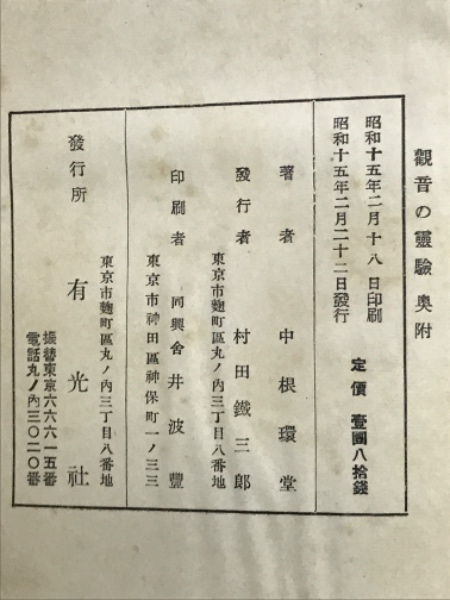 觀音の靈驗 奥附
昭和十五年二月十八日印刷
昭和十五年二月二十二日發行
定價 壹圓八拾錢
著者 中根環堂
東京市麴町區丸ノ內三丁目八番地
發行者 村田鐵三郎
東京市神田區神保町一ノ三三
印刷者 同興舍 井波豐
東京市麴町區丸ノ內三丁目八番地
發行所 有光社
振替東京六六六一五番
電話丸ノ內三〇二〇番